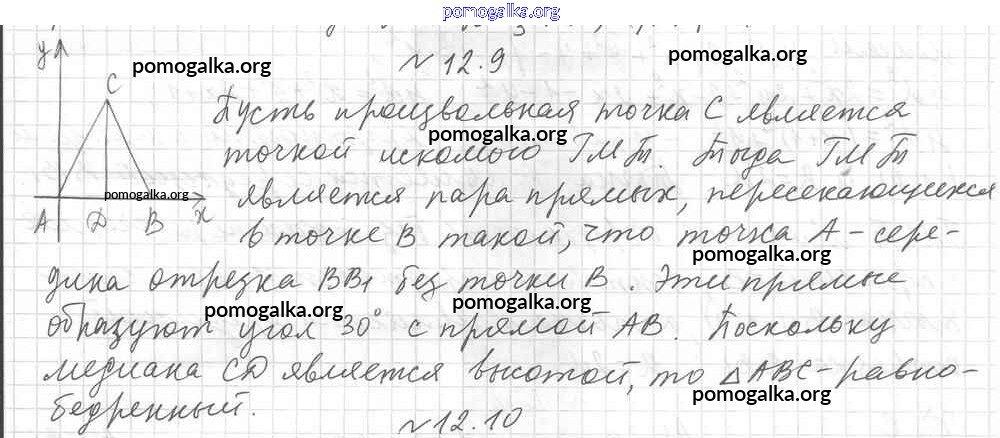 pomogalka.org
№ 12.9
y
pomogalka.org
pomogalka.org
C
Пусть произвольная точка C является
pomogalka.org
точкой искомого ГМТ. Тогда ГМТ
pomogalka.org
является пара прямых, пересекающихся
A D B x
в точке B такой, что точка A - сере-
pomogalka.org
дина отрезка BB₁ без точки B. Эти прямые
pomogalka.org
pomogalka.org
образуют угол 30° с прямой AB. Поскольку
медиана CD является высотой, то △ABC - равно-
pomogalka.org
бедренный.
№ 12.10